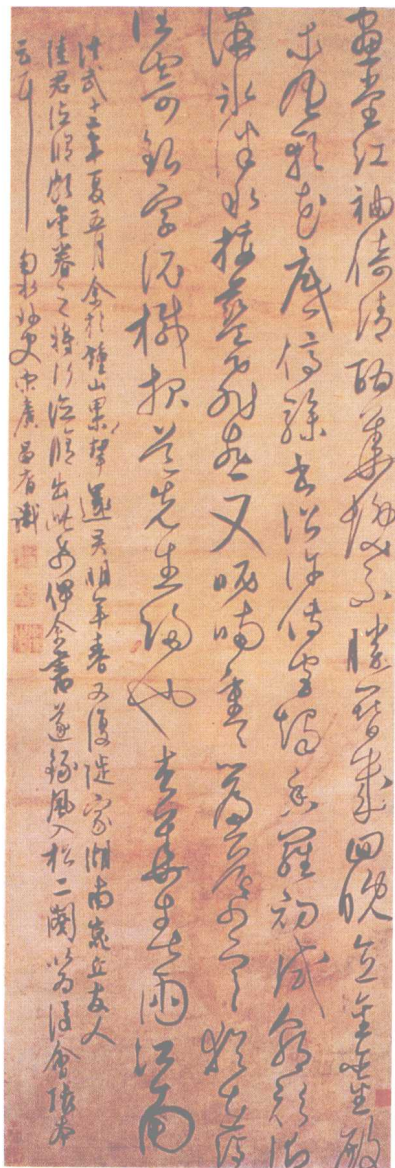 畫堂紅袖倚清酣華髮不勝簪幾回晚直金鑾殿
東風軟花底停驂書詔許傳宮燭香羅初試朝衫御
溝冰泮水挼藍飛燕又呢喃重重簾幕寒猶在憑
誰寄銀字泥緘報道先生歸也杏花春雨江南
洪武十二年夏五月余於鍾山還吳明年春又復徙家湖南友人
陸君眷眷之將行出此俾余書遂錄風入松二闋以為後會張本
云耳 史宋廣昌裔識